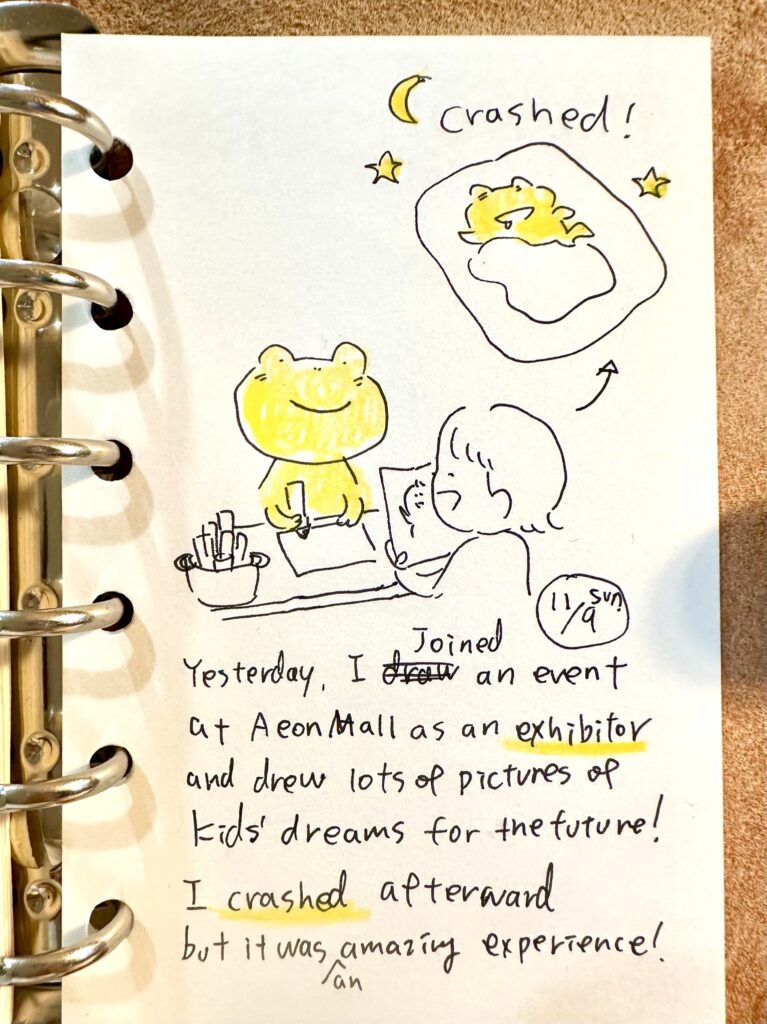 crashed!
11/9 sun
Joined
Yesterday, I draw an event
at AeonMall as an exhibitor
and drew lots of pictures of
kids' dreams for the future!
I crashed afterward
but it was amazing experience!
an